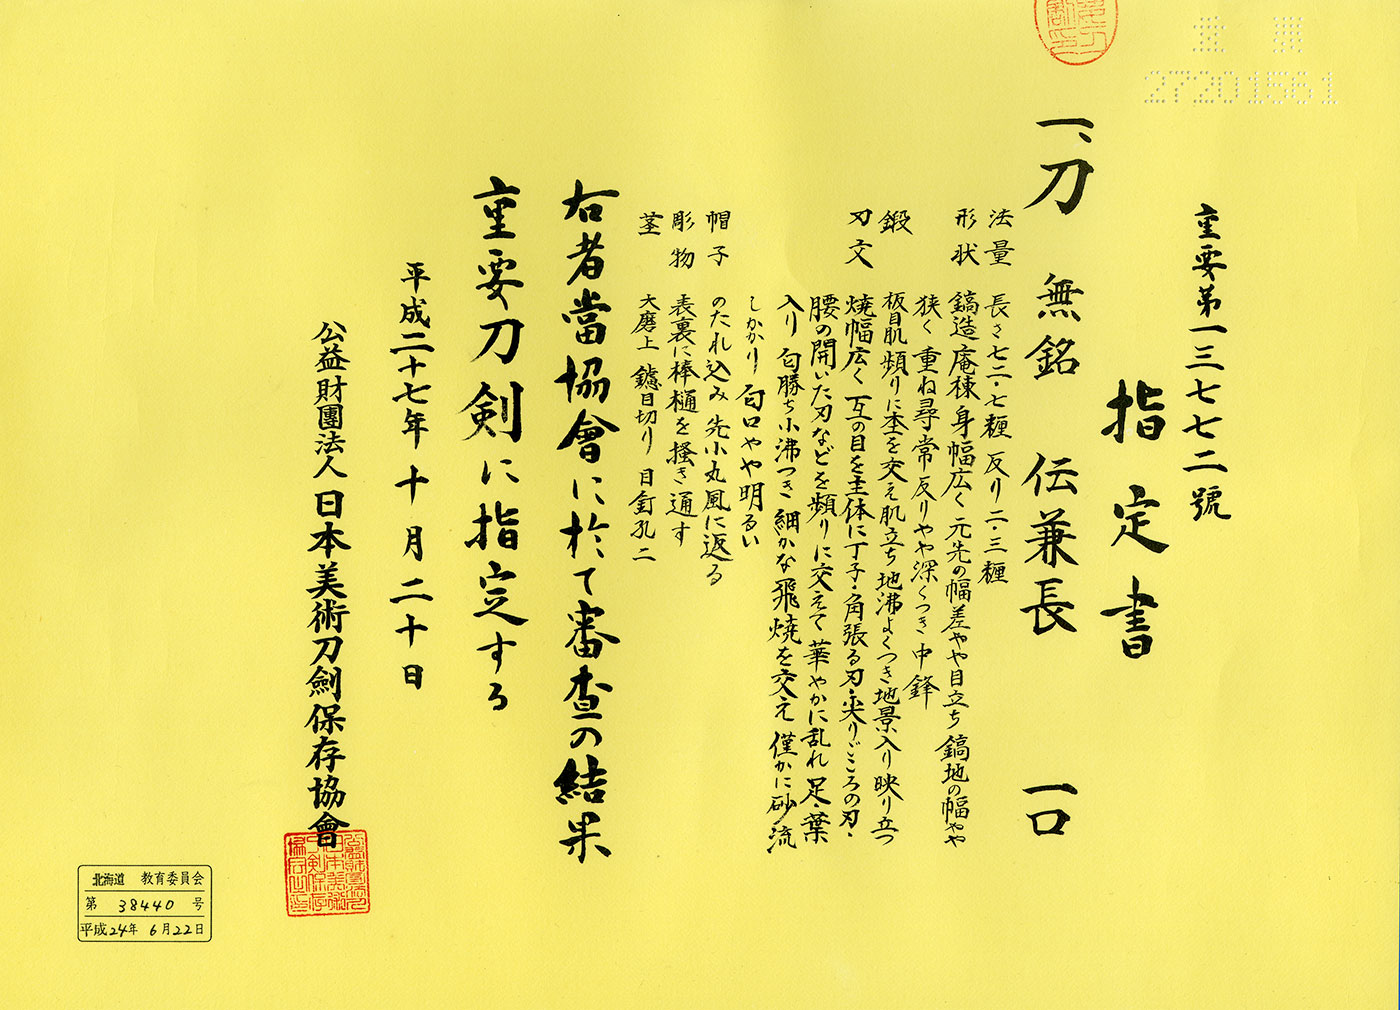 27201561
重要第一三七七二號
指定書
一、刀 無銘 伝兼長 一口
法量 長さ七二・七糎 反り二・三糎
形状 鎬造 庵棟 身幅広く 元先の幅差やや目立ち 鎬地の幅やや
狭く 重ね尋常 反りやや深くつき 中鋒
鍛 板目肌 頻りに杢を交え 肌立ち 地沸よくつき 地景入り 映り立つ
刃文 焼幅広く 互の目を主体に丁子・角張る刃・尖りごころの刃・
腰の開いた刃などを頻りに交えて華やかに乱れ 足・葉
入り 匂勝ち小沸つき 細かな飛焼を交え 僅かに砂流
しかかり 匂口やや明るい
帽子 のたれ込み 先小丸風に返る
彫物 表裏に棒樋を掻き通す
茎 大磨上 鑢目切り 目釘孔二
右者當協會に於て審査の結果
重要刀剣に指定する
平成二十七年十月二十日
公益財團法人日本美術刀劍保存協會
北海道 教育委員会
第 38440 号
平成24年 6月22日